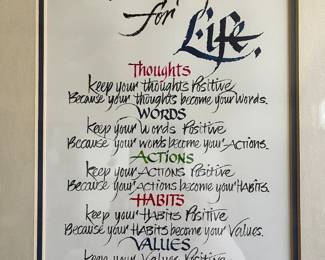 for
Life.
Thoughts
Keep your thoughts Positive
Because your thoughts become your Words.
WORDS
Keep your Words Positive
Because your words become your ACTIONS.
ACTIONS
Keep your ACTIONS Positive
Because your ACTIONS become your HABITS.
HABITS
Keep your HABITS Positive
Because your HABITS become your Values.
VALUES
Keep your Values Positive